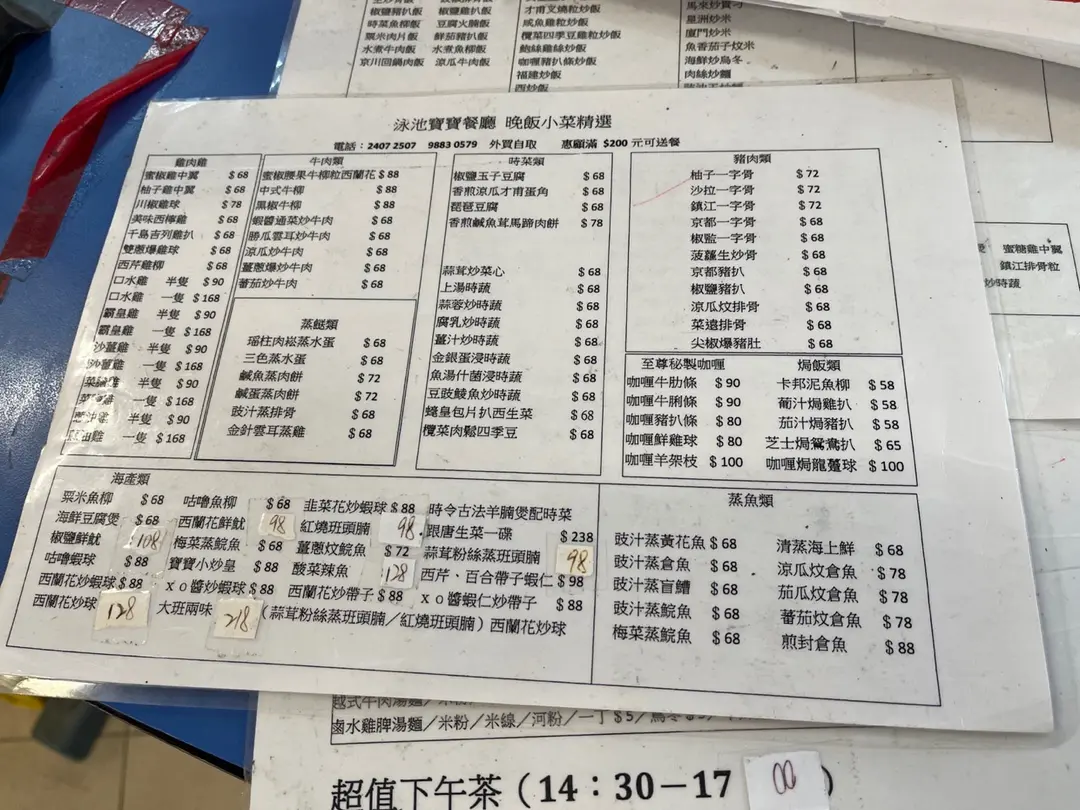 椒鹽豬扒飯 椰菜豬扒飯
時菜魚柳飯 豆腐火腩飯
粟米肉片飯 鮮茄豬扒飯
水煮牛肉飯 水煮魚柳飯
京川回鍋肉飯 涼瓜牛肉飯
才甫叉燒粒炒飯
咸魚雞粒炒飯
欖菜四季豆雞粒炒飯
鮑絲雞絲炒飯
咖喱豬扒條炒飯
福建炒飯
西炒飯
星洲炒米
廈門炒米
魚香茄子炆米
海鮮炒烏冬
肉絲炒麵
泳池寶寶餐廳 晚飯小菜精選
電話：2407 2507 9883 0579 外買自取 惠顧滿 $200 元可送餐
雞肉雞
蜜椒雞中翼 $68
柚子雞中翼 $68
川椒雞球 $78
美味西檸雞 $68
千島吉列雞扒 $68
雙蔥爆雞球 $68
西芹雞柳 $68
口水雞 半隻 $90
口水雞 一隻 $168
霸皇雞 半隻 $90
霸皇雞 一隻 $168
沙薑雞 半隻 $90
沙薑雞 一隻 $168
半隻 $90
一隻 $168
半隻 $90
一隻 $168
牛肉類
蜜椒腰果牛柳粒西蘭花 $88
中式牛柳 $88
黑椒牛柳 $88
蝦醬通菜炒牛肉 $68
勝瓜雲耳炒牛肉 $68
涼瓜炒牛肉 $68
薑蔥爆炒牛肉 $68
蕃茄炒牛肉 $68
蒸餸類
瑶柱肉崧蒸水蛋 $68
三色蒸水蛋 $68
鹹魚蒸肉餅 $72
鹹蛋蒸肉餅 $72
豉汁蒸排骨 $68
金針雲耳蒸雞 $68
時菜類
椒鹽玉子豆腐 $68
香煎涼瓜才甫蛋角 $68
琵琶豆腐 $68
香煎鹹魚茸馬蹄肉餅 $78
蒜茸炒菜心 $68
上湯時蔬 $68
蒜蓉炒時蔬 $68
腐乳炒時蔬 $68
薑汁炒時蔬 $68
金銀蛋浸時蔬 $68
魚湯什菌浸時蔬 $68
豆豉鯪魚炒時蔬 $68
蠔皇包片扒西生菜 $68
欖菜肉鬆四季豆 $68
豬肉類
柚子一字骨 $72
沙拉一字骨 $72
鎮江一字骨 $72
京都一字骨 $68
椒監一字骨 $68
菠蘿生炒骨 $68
京都豬扒 $68
椒鹽豬扒 $68
涼瓜炆排骨 $68
菜遠排骨 $68
尖椒爆豬肚 $68
至尊秘製咖喱
咖喱牛肋條 $90
咖喱牛脷條 $90
咖喱豬扒條 $80
咖喱鮮雞球 $80
咖喱羊架枝 $100
焗飯類
卡邦泥魚柳 $58
葡汁焗雞扒 $58
茄汁焗豬扒 $58
芝士焗鴛鴦扒 $65
咖喱焗龍躉球 $100
海產類
粟米魚柳 $68
海鮮豆腐煲 $68
椒鹽鮮魷 108
咕嚕蝦球 $88
西蘭花炒蝦球 $88
西蘭花炒球 128
咕嚕魚柳 $68
西蘭花鮮魷 98
梅菜蒸鯇魚 $68
寶寶小炒皇 $88
xo醬炒蝦球 $88
大班兩味 218 （蒜茸粉絲蒸班頭腩／紅燒班頭腩）西蘭花炒球
韭菜花炒蝦球 $88
紅燒班頭腩 98
薑蔥炆鯇魚 $72
酸菜辣魚 128
西蘭花炒帶子 $88
時令古法羊腩煲配時菜
跟唐生菜一碟 $238
蒜茸粉絲蒸班頭腩 98
西芹、百合帶子蝦仁 $98
xo醬蝦仁炒帶子 $88
蒸魚類
豉汁蒸黃花魚 $68
豉汁蒸倉魚 $68
豉汁蒸盲鰽 $68
豉汁蒸鯇魚 $68
梅菜蒸鯇魚 $68
清蒸海上鮮 $68
涼瓜炆倉魚 $78
茄瓜炆倉魚 $78
蕃茄炆倉魚 $78
煎封倉魚 $88
蜜糖雞中翼
鎮江排骨粒
炒時蔬
越式牛肉湯麵／
鹵水雞脾湯麵／米粉／米線／河粉／一丁 $5／烏冬
超值下午茶（14：30－17 00）